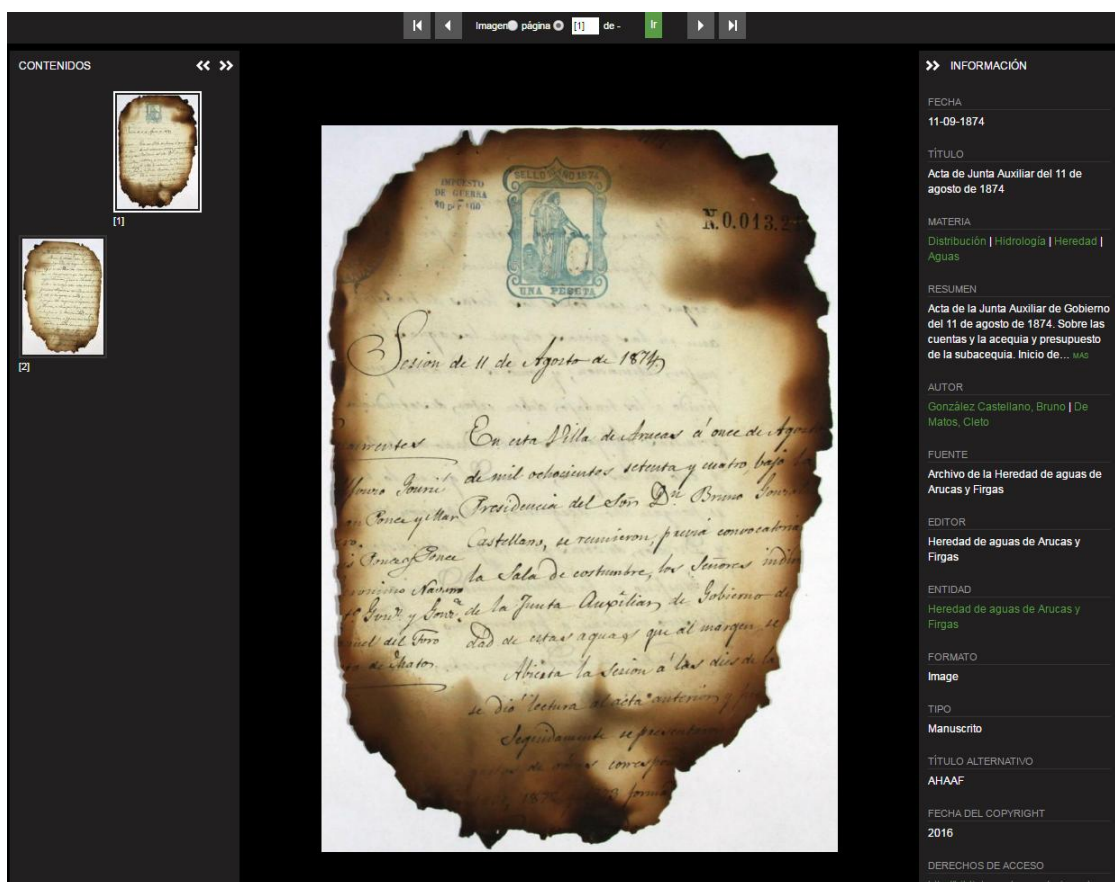 Imagen página [1] de - Ir
CONTENIDOS
[1]
[2]
IMPUESTO
DE GUERRA
SELLO AÑO 1874
UNA PESETA
N.0.013.2
Sesion de 11 de Agosto de 1874
En esta Villa de Arucas á once de Agosto
de mil ochocientos setenta y cuatro, bajo la
Presidencia del Señ Dn Bruno Gonzal
Castellano, se reunieron, previa convocatoria
la Sala de costumbre, los Señores indiv
de la Junta Auxiliar de Gobierno de
dad de estas aguas que al margen se
Abierta la Sesion á las diez de la
se dió lectura al acta anterior y
Seguidamente se presentaron
on Ponce y Mar
Ponce y Ponce
Navarro
y Gonz
uel del Toro
de Matos
INFORMACIÓN
FECHA
11-09-1874
TÍTULO
Acta de Junta Auxiliar del 11 de
agosto de 1874
MATERIA
Distribución | Hidrología | Heredad |
Aguas
RESUMEN
Acta de la Junta Auxiliar de Gobierno
del 11 de agosto de 1874. Sobre las
cuentas y la acequia y presupuesto
de la subacequia. Inicio de... MÁS
AUTOR
González Castellano, Bruno | De
Matos, Cleto
FUENTE
Archivo de la Heredad de aguas de
Arucas y Firgas
EDITOR
Heredad de aguas de Arucas y
Firgas
ENTIDAD
Heredad de aguas de Arucas y
Firgas
FORMATO
Image
TIPO
Manuscrito
TÍTULO ALTERNATIVO
AHAAF
FECHA DEL COPYRIGHT
2016
DERECHOS DE ACCESO